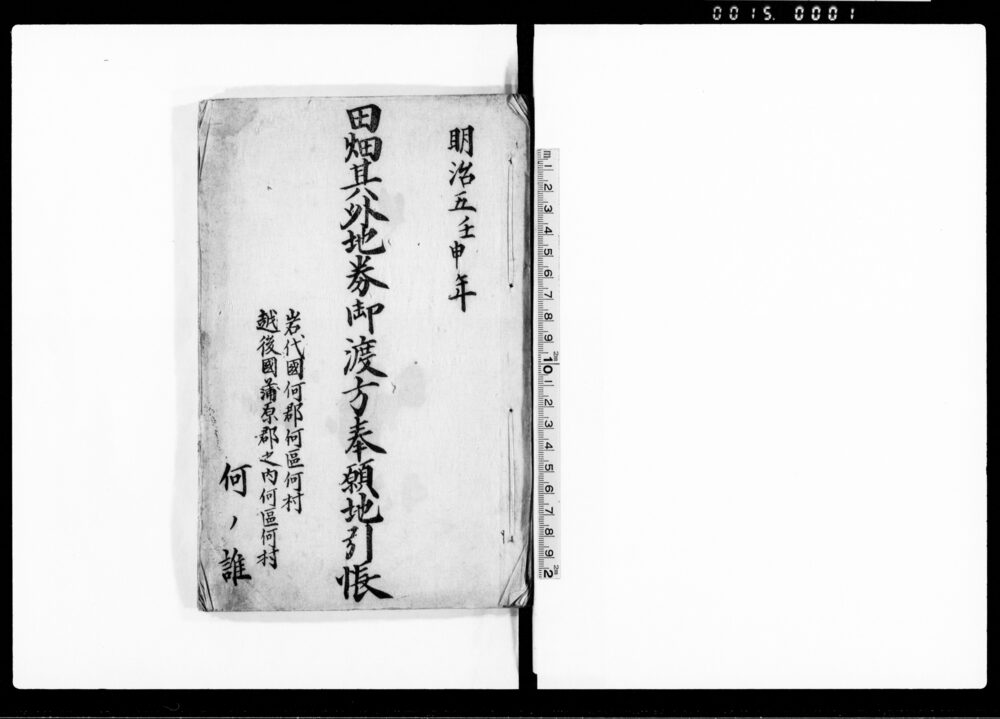 0015. 0001
明治五壬申年
田畑其外地券御渡方奉願地引帳
岩代國何郡何區何村
越後國蒲原郡之内何區何村
何ノ誰
m 1 2 3 4 5 6 7 8 9 10 1 2 3 4 5 6 7 8 9 2